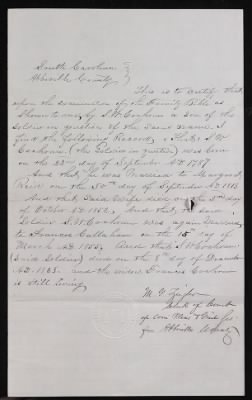 South Carolina
Abbeville County
This is to certify that
upon the examination of the Family Bible as
shown to me, by J. W. Cochran a son of the
Soldier in question of the same name, I
find the following Record, that J. W.
Cochran, (the Soldier in question) was born
on the 22nd day of September AD. 1787
And that, he was Married to Margaret
on the 30th day of September AD. 1813.
And that, Said Wife died on the 3rd day
of October AD. 1852, And that, the said
Soldier, J W Cochran was again Married
to Frances Callaham on the 15 day of
March AD. 1855, And that J. W Cochran
(Said Soldier) died on the 8th day of December
AD. 1865. and the widow Frances Cochran
is still living,
M. G. Zeigler
Clerk of Court
of com Pleas &
for Abbeville County